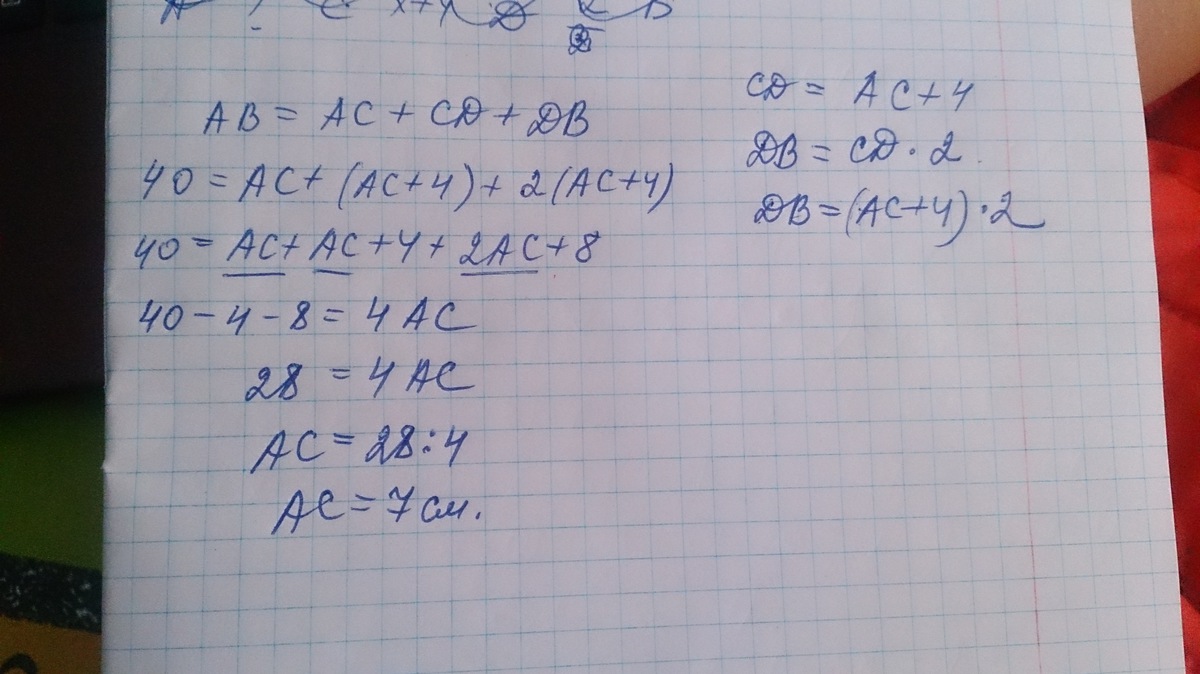 A ? C x+4 D B
2
AB = AC + CD + DB
40 = AC + (AC+4) + 2(AC+4)
40 = AC + AC + 4 + 2AC + 8
40 - 4 - 8 = 4 AC
28 = 4 AC
AC = 28:4
AC = 7 см.
CD = AC + 4
DB = CD · 2
DB = (AC+4) · 2